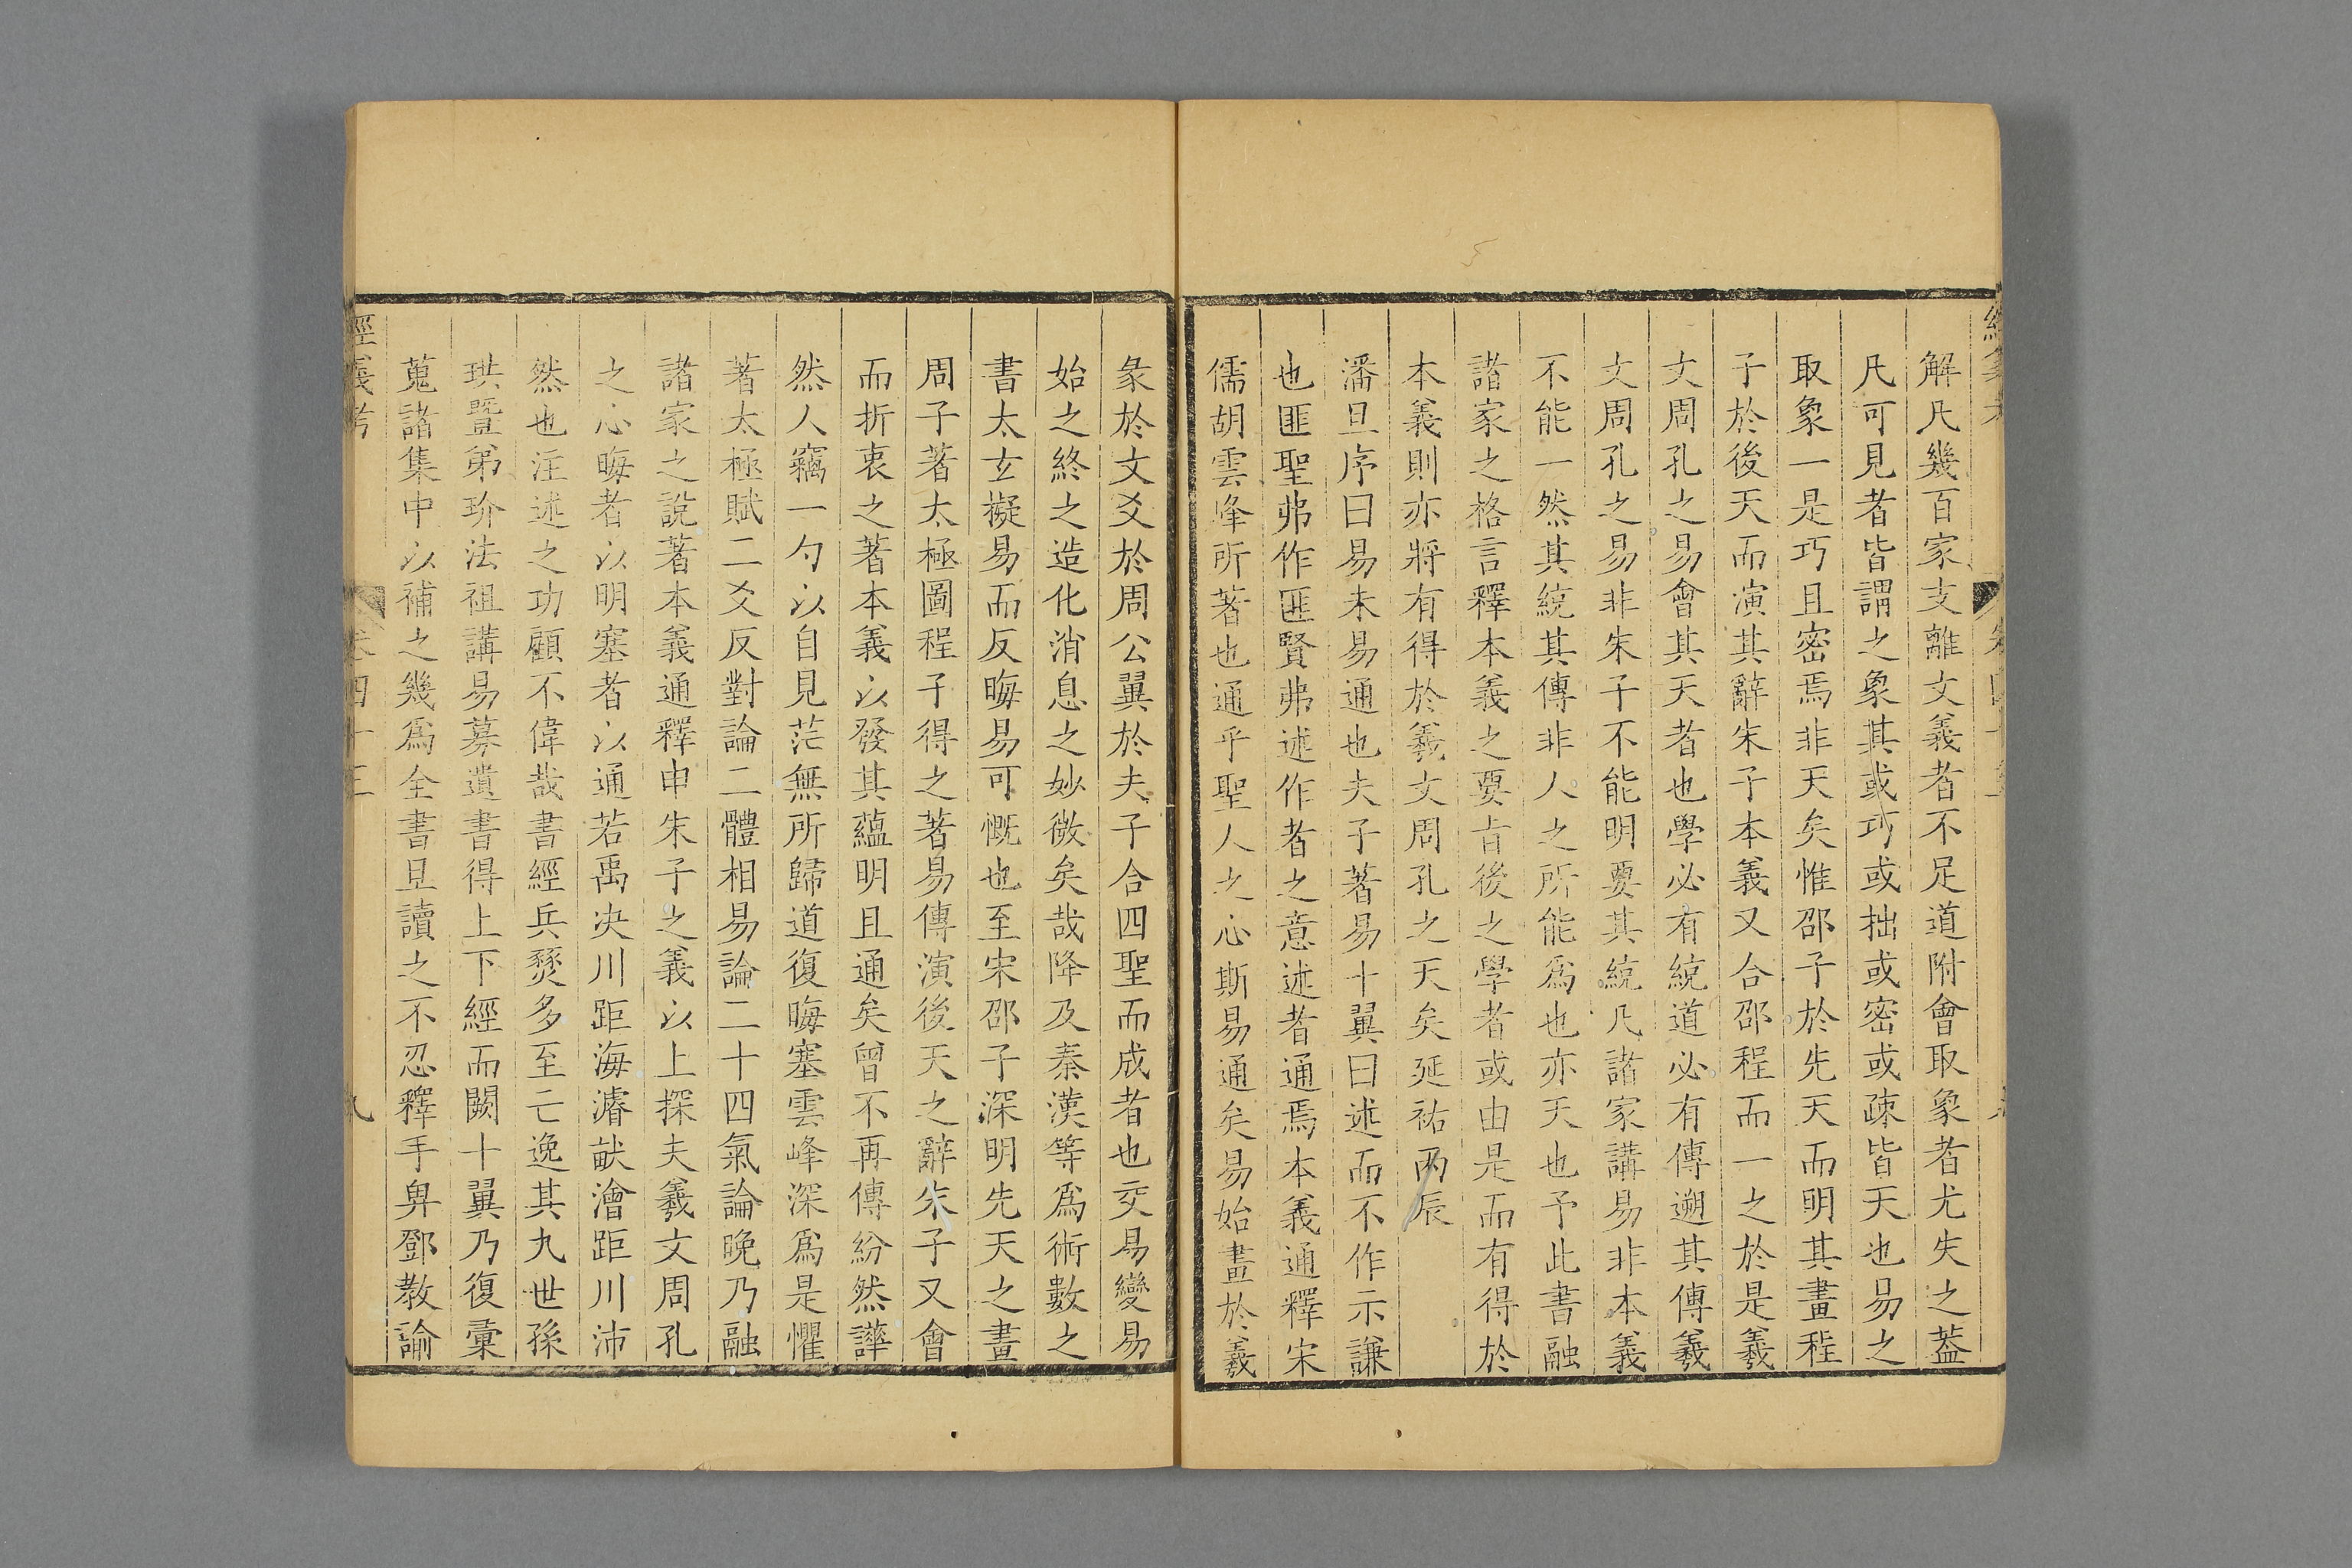 解凡幾百家支離文義者不足道附會取象者尤失之蓋
凡可見者皆謂之象其或巧或拙或密或疎皆天也易之
取象一是巧且密焉非天矣惟邵子於先天而明其畫程
子於後天而演其辭朱子本義又合邵程而一之於是羲
文周孔之易會其天者也學必有統道必有傳遡其傳羲
文周孔之易非朱子不能明要其統凡諸家講易非本義
不能一然其統其傳非人之所能爲也亦天也予此書融
諸家之格言釋本義之要㫖後之學者或由是而有得於
本義則亦將有得於羲文周孔之天矣延祐丙辰
潘旦序曰易未易通也夫子著易十翼曰述而不作示謙
也匪聖弗作匪賢弗述作者之意述者通焉本義通釋宋
儒胡雲峰所著也通乎聖人之心斯易通矣易始畫於羲
彖於文爻於周公翼於夫子合四聖而成者也交易變易
始之終之造化消息之妙微矣哉降及秦漢等爲術數之
書太玄擬易而反晦易可慨也至宋邵子深明先天之畫
周子著太極圖程子得之著易傳演後天之辭朱子又會
而折衷之著本義以發其蘊明且通矣曾不再傳紛然譁
然人竊一勺以自見茫無所歸道復晦塞雲峰深爲是懼
著太極賦二爻反對論二體相易論二十四氣論晚乃融
諸家之說著本義通釋申朱子之義以上探夫羲文周孔
之心晦者以明塞者以通若禹决川距海濬畎澮距川沛
然也注述之功顧不偉哉書經兵燹多至亡逸其九世孫
珙暨弟玠法祖講易募遺書得上下經而闕十翼乃復彙
蒐諸集中以補之幾爲全書旦讀之不忍釋手畀鄧教諭
經義考
卷四十三
九